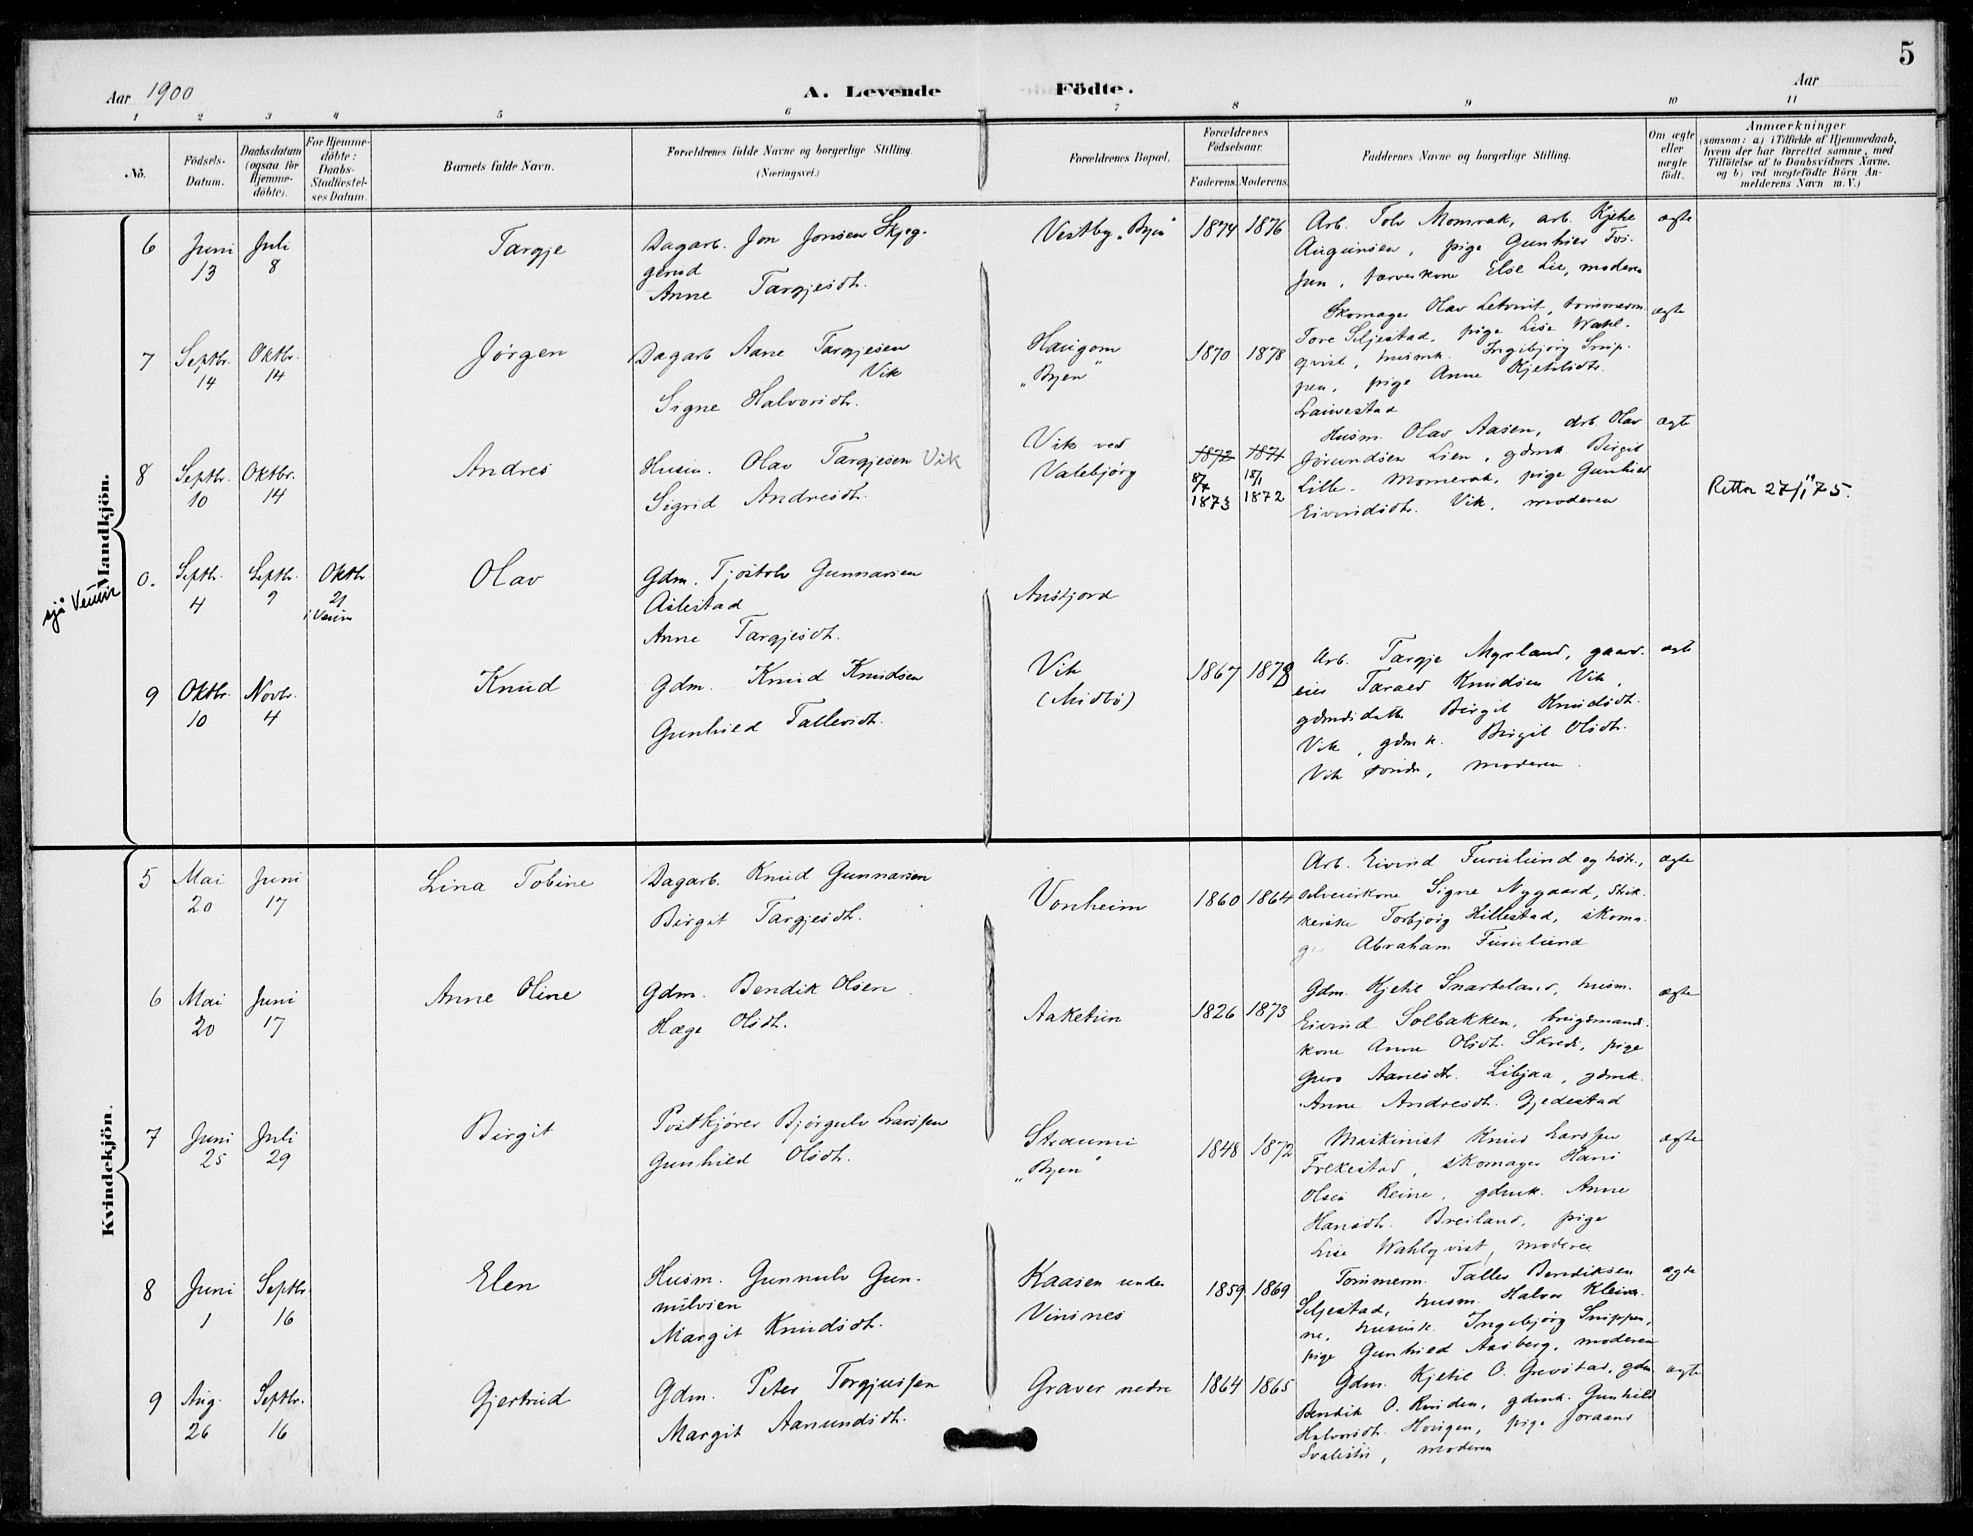 5
Aar 1900
A. Levende
Födte.
Aar
1 2 3 4 5 6 7 8 9 10 11
No.
Födsels-
Datum.
Daabsdatum
(ogsaa for
Hjemme-
döbte).
For Hjemme-
döbte:
Daabs-
Stadfæstel-
ses Datum.
Barnets fulde Navn.
Forældrenes fulde Navne og borgerlige Stilling.
(Næringsvei.)
Forældrenes Bopæl.
Forældrenes
Födselsaar.
Faderens. Moderens.
Faddernes Navne og borgerlige Stilling.
Om ægte
eller
uægte
födt.
Anmærkninger
(saasom: a) i Tilfælde af Hjemmedaab,
hvem der har forrettet samme, med
Tilföielse af to Daabsvidners Navne,
og b) ved uægtefödte Börn An-
melderens Navn m. V.)
Mandkjön.
6 Juni 13 Juli 8 Targje
Dagarb. Jon Jonsen Skjeg-
gerud
Anne Targjesdtr.
Vestby "Byen" 1874 1876
Arb. Tolv Momrak, arb. Kjetil
Augunsen, pige Gunhild Fos-
jun, farverkone Else Lie, moderen
ægte
7 Septbr. 14 Oktbr. 14 Jørgen
Dagarb Aane Targjesen
Vik
Signe Halvorsdtr.
Haugom
"Byen"
1870 1878
Skomager Olav Letvnit, tømmerm.
Tore Seljestad, pige Lise Wahl-
qvist, husmk. Ingebjörg Snip-
pen, pige Anne Kjetilsdtr.
ægte
8 Septbr. 10 Oktbr. 14 Andres
Husm. Olav Targjesen Vik
Sigrid Andresdtr.
Vik ved
Valebjørg
1872 1871
8/7 1873 15/1 1872
Husm. Olav Aasen, arb. Olav
Jørundsen Lien, gdmk Birgit
Lille-Momrak, pige Gunhild
Eivindsdtr. Vik, moderen
ægte
Rettn 27/11 75.
sjå Veum
0. Septbr. 4 Septbr. 9 Oktbr. 21 i Veum Olav
Gdm. Tjostolv Gunnarsen
Aslestad
Anne Targjesdtr.
Ansfjord
9 Oktbr. 10 Novbr. 4 Knud
Gdm. Knud Knudsen
Gunhild Tallevsdtr.
Vik
(Midbö)
1867 1878
Arb. Targje Myrland, gaard-
eier Tarald Knudsen Vik,
gdmsdatter Birgit Knudsdtr.
Vik, gdmk. Birgit Olsdtr.
Vik søndre, moderen.
ægte
Kvindekjön.
5 Mai 20 Juni 17 Lina Tobine
Dagarb. Knud Gunnarsen
Birgit Targjesdtr.
Vonheim 1860 1864
Arb. Eivind Furulund og hstr.,
Signe Nygaard, strik-
kerske Torbjørg Hillestad, skoma-
ger Abraham Furulund
ægte
6 Mai 20 Juni 17 Anne Oline
Gdm. Bendik Olsen
Hæge Olsdtr.
Aaketun 1826 1873
Gdm. Kjetil Snarteland, husm.
Eivind Solbakken, brugsmands-
kone Anne Olsdtr. Skredi, pige
Guro Aanesdtr. Libjaa, gdmk.
Anne Andresdtr. Gjedestad
ægte
7 Juni 25 Juli 29 Birgit
Postkjører Bjørgulv Larssen
Gunhild Olsdtr.
Straumi
"Byen"
1848 1872
Maskinist Knud Larssen
Frekestad, skomager Hans
Olsen Reine, gdmk. Anne
Hansdtr. Breiland, pige
Lise Wahlqvist, moderen
ægte
8 Juni 1 Septbr. 16 Elen
Husm. Gunnulv Gun-
nulvsen
Margit Knudsdtr.
Kaasen under
Vinsnes
1859 1869
Tømmerm. Tallev Bendiksen
Seljestad, husm. Halvor Kleiva-
ne, husmk. Ingebjørg Snippen,
pige Gunhild Aasberg, moderen
ægte
9 Aug. 26 Septbr. 16 Gjertrud
Gdm. Peter Torgjussen
Margit Aanundsdtr.
Graver nedre 1864 1865
Gdm. Kjetil O. Grevstad, gdm
Bendik O. Kviden, gdmk. Gunhild
Halvorsdtr. Haugen, pige Joraand
Svalestu, moderen
ægte